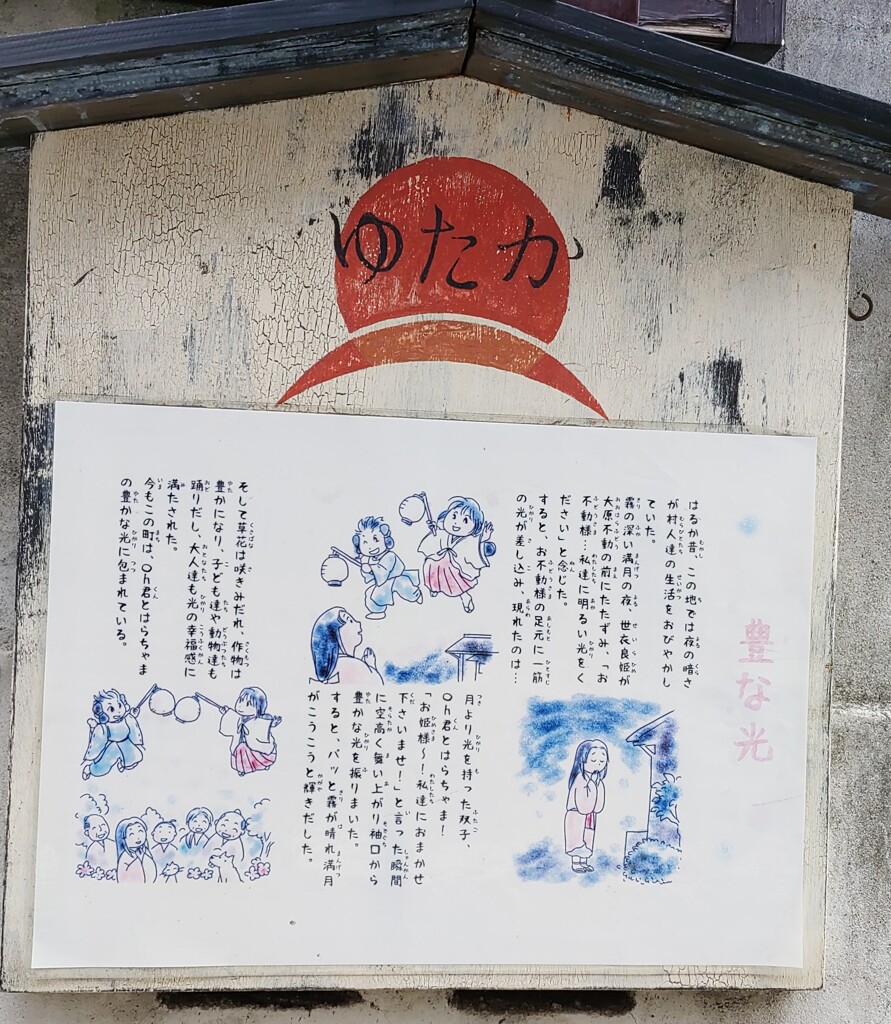 ゆたか
豊な光
はるか昔、この地では夜の暗さ
が村人達の生活をおびやかし
ていた。
霧の深い満月の夜、世衣良姫が
大原不動の前にたたずみ、「お
不動様…私達に明るい光をく
ださい」と念じた。
すると、お不動様の足元に一筋
の光が差し込み、現れたのは…
月より光を持った双子、
Oh君とはらちゃま！
「お姫様～！私達におまかせ
下さいませ！」と言った瞬間
に空高く舞い上がり袖口から
豊かな光を振りまいた。
すると、パッと霧が晴れ満月
がこうこうと輝きだした。
そして草花は咲きみだれ、作物は
豊かになり、子ども達や動物達も
踊りだし、大人達も光の幸福感に
満たされた。
今もこの町は、Oh君とはらちゃま
の豊かな光に包まれている。